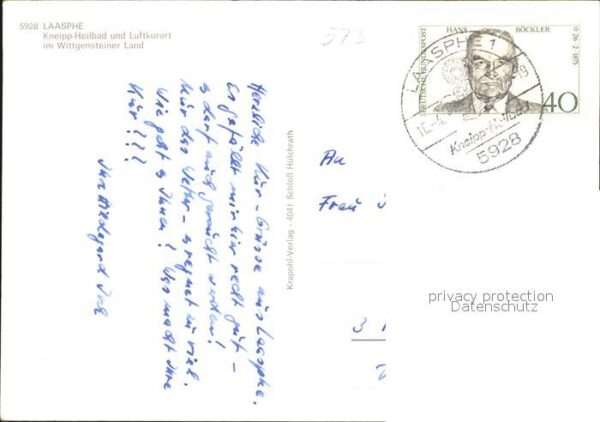 5928 LAASPHE
Kneipp-Heilbad und Luftkurort
im Wittgensteiner Land
573
HANS BÖCKLER
DEUTSCHE BUNDESPOST
40
LAASPHE 1
Kneipp-Heilbad
5928
Herzliche Kur-Grüsse aus Laasphe.
Es gefällt mir hier recht gut –
es darf auch geraucht werden!
Nur das Wetter – es regnet zu viel.
Wie geht es Ihnen? Was macht Ihre
Kur???
Ihre Hildegard
Krapohl-Verlag - 4041 Schloß Hülchrath
An
Frau
3
privacy protection
Datenschutz